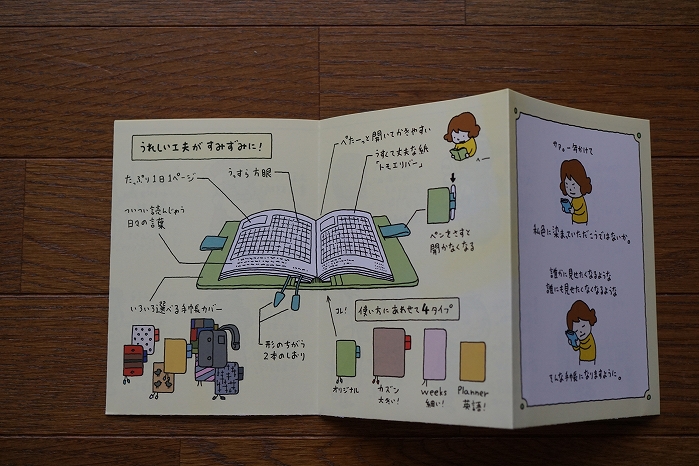 うれしい工夫が すみずみに!
たっぷり1日1ページ
うっすら方眼
ついつい読んじゃう
日々の言葉
いろいろ選べる手帳カバー
形のちがう
2本のしおり
ぺたーっと開いてかきやすい
うすくて丈夫な紙
「トモエリバー」
へー
ペンをさすと
開かなくなる
コレ!
使い方にあわせて4タイプ
オリジナル
カズン
大きい!
weeks
細い!
Planner
英語!
私色に染まっていただこうではないか。
誰かに見せたくなるような
誰にも見せたくなくなるような
そんな手帳になりますように。